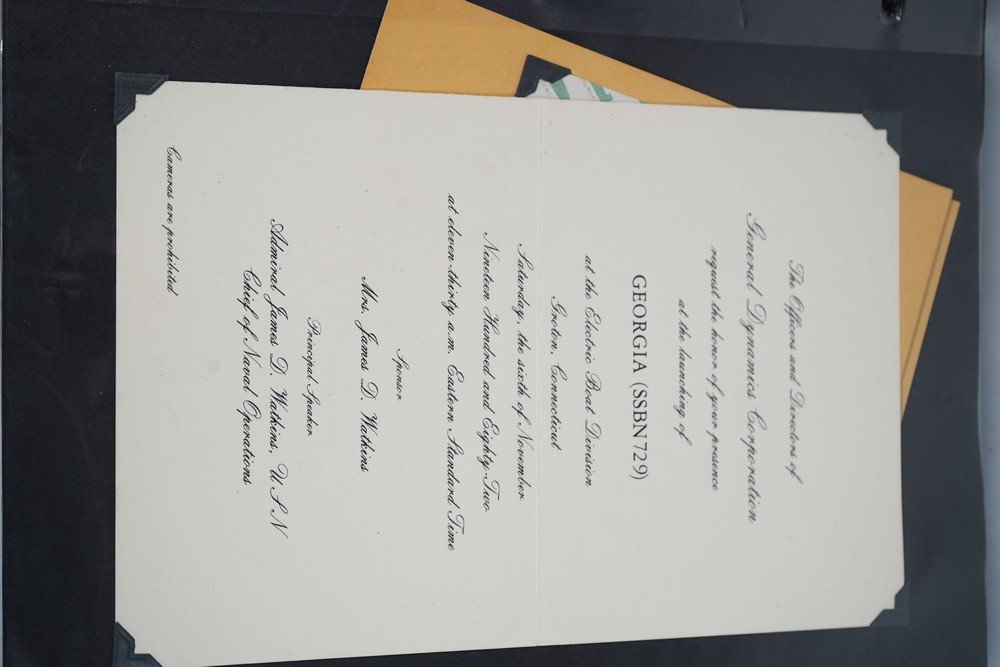 The Officers and Directors of
General Dynamics Corporation
request the honor of your presence
at the launching of
GEORGIA (SSBN729)
at the Electric Boat Division
Groton, Connecticut
Saturday, the sixth of November
Nineteen Hundred and Eighty-Two
at eleven-thirty a.m. Eastern Standard Time
Sponsor
Mrs. James D. Watkins
Principal Speaker
Admiral James D. Watkins, USN
Chief of Naval Operations
Cameras are prohibited